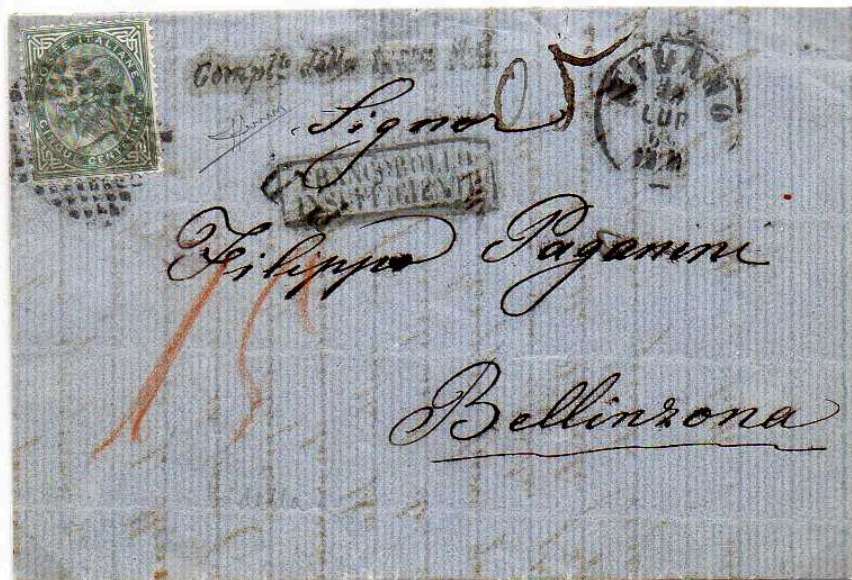 POSTE ITALIANE
CINQUE CENTESIMI
Compl.to della tassa
05
MILANO
LUG
Signor
FRANCOBOLLO
INSUFFICIENTE
Filippo Paganini
15
Bellinzona